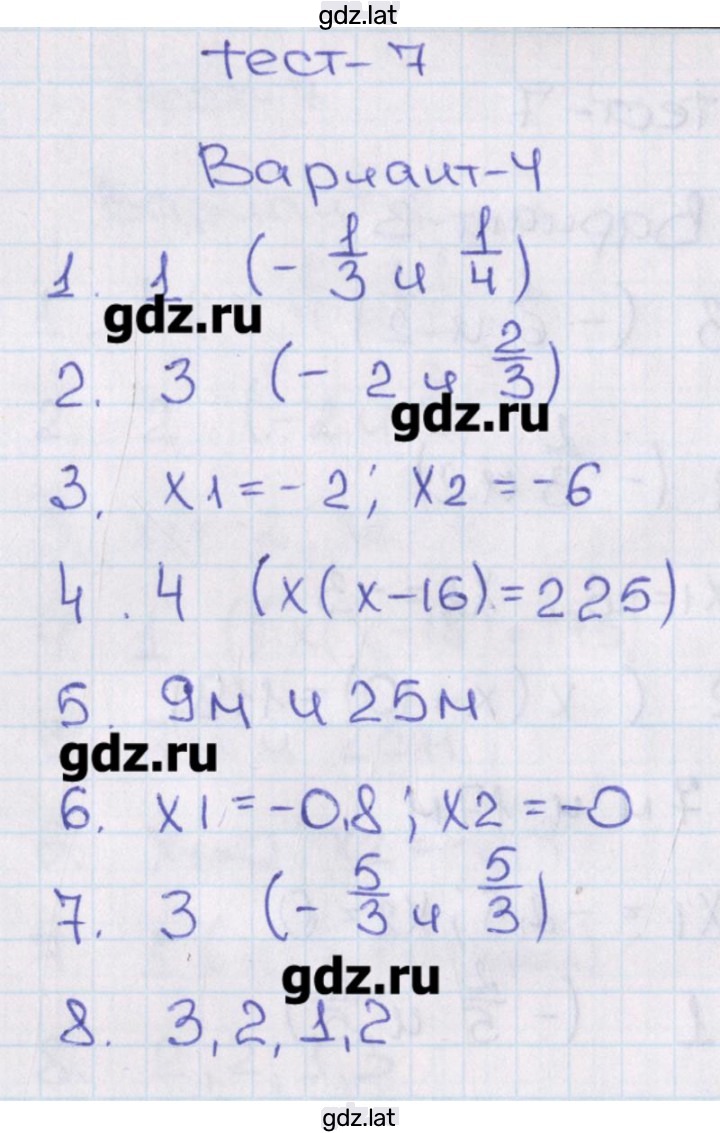 gdz.lat
тест-7
Вариант-4
1. 1 (- 1/3 и 1/4)
gdz.ru
2. 3 (- 2 и 2/3)
gdz.ru
3. x1 = - 2; x2 = -6
4. 4 (x(x-16) = 225)
5. 9м и 25м
gdz.ru
6. x1 = -0,8; x2 = -0
7. 3 (- 5/3 и 5/3)
gdz.ru
8. 3, 2, 1, 2
gdz.lat